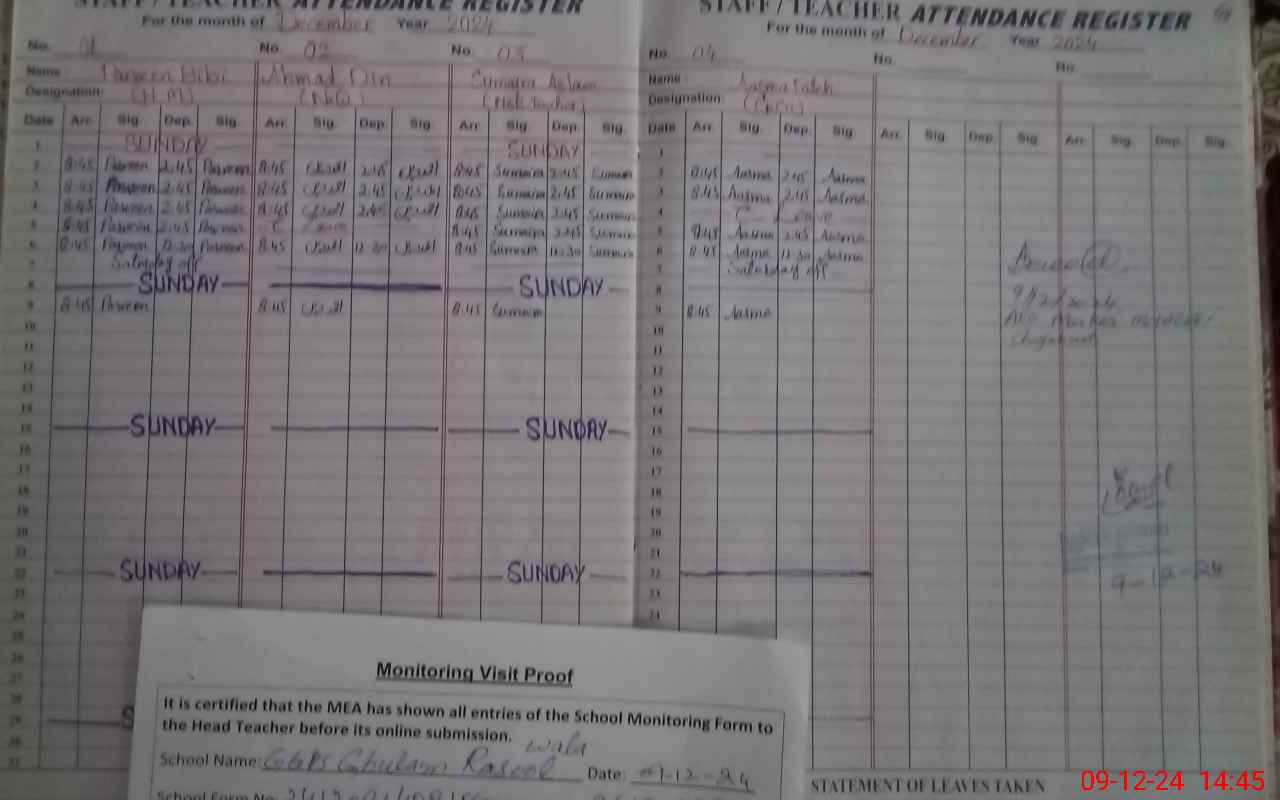 STAFF / TEACHER ATTENDANCE REGISTER
For the month of December Year 2024
No. 01 No. 02 No. 03
Name Parveen Bibi Ahmad Din Sumaira Aslam
Designation: (H.M)
Date Arr. Sig. Dep. Sig. Arr. Sig. Dep. Sig. Arr. Sig. Dep. Sig.
1 SUNDAY SUNDAY
2 8:45 Parveen 2:45 Parveen 8:45 2:45 8:45 Sumaira 2:45 Sumaira
3 8:45 Parveen 2:45 Parveen 8:45 2:45 8:45 Sumaira 2:45 Sumaira
4 8:45 Parveen 2:45 Parveen 8:45 2:45 8:45 Sumaira 2:45 Sumaira
5 8:45 Parveen 2:45 Parveen C Leave 8:45 Sumaira 2:45 Sumaira
6 8:45 Parveen 12:30 Parveen 8:45 12:30 8:45 Sumaira 12:30 Sumaira
7 Saturday off
8 SUNDAY SUNDAY
9 8:45 Parveen 8:45 8:45 Sumaira
10
11
12
13
14
15 SUNDAY SUNDAY
16
17
18
19
20
21
22 SUNDAY SUNDAY
23
24
25
26
27
28
29 S
30
31
STAFF / TEACHER ATTENDANCE REGISTER
For the month of December Year 2024
No. 04 No. No.
Name: Aasma
Designation:
Date Arr. Sig. Dep. Sig. Arr. Sig. Dep Sig Arr. Sig. Dep. Sig.
1
2 8:45 Aasma 2:45 Aasma
3 8:45 Aasma 2:45 Aasma
4 C Leave
5 8:45 Aasma 2:45 Aasma
6 8:45 Aasma 12:30 Aasma
7 Saturday off
8
9 8:45 Aasma
10
11
12
13
14
15
16
17
18
19
20
21
22
23
24
9/12/2024
9-12-24
STATEMENT OF LEAVES TAKEN
Monitoring Visit Proof
It is certified that the MEA has shown all entries of the School Monitoring Form to
the Head Teacher before its online submission.
School Name: GGPS Ghulam Rasool wala Date: 09-12-24
School Form No.
09-12-24 14:45